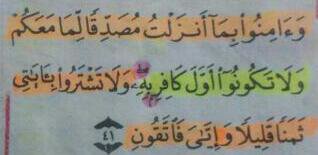 وَءَامِنُوا۟ بِمَآ أَنزَلْتُ مُصَدِّقًا لِّمَا مَعَكُمْ
وَلَا تَكُونُوٓا۟ أَوَّلَ كَافِرٍۭ بِهِۦ وَلَا تَشْتَرُوا۟ بِـَٔايَـٰتِى
ثَمَنًا قَلِيلًا وَإِيَّـٰىَ فَٱتَّقُونِ ٤١